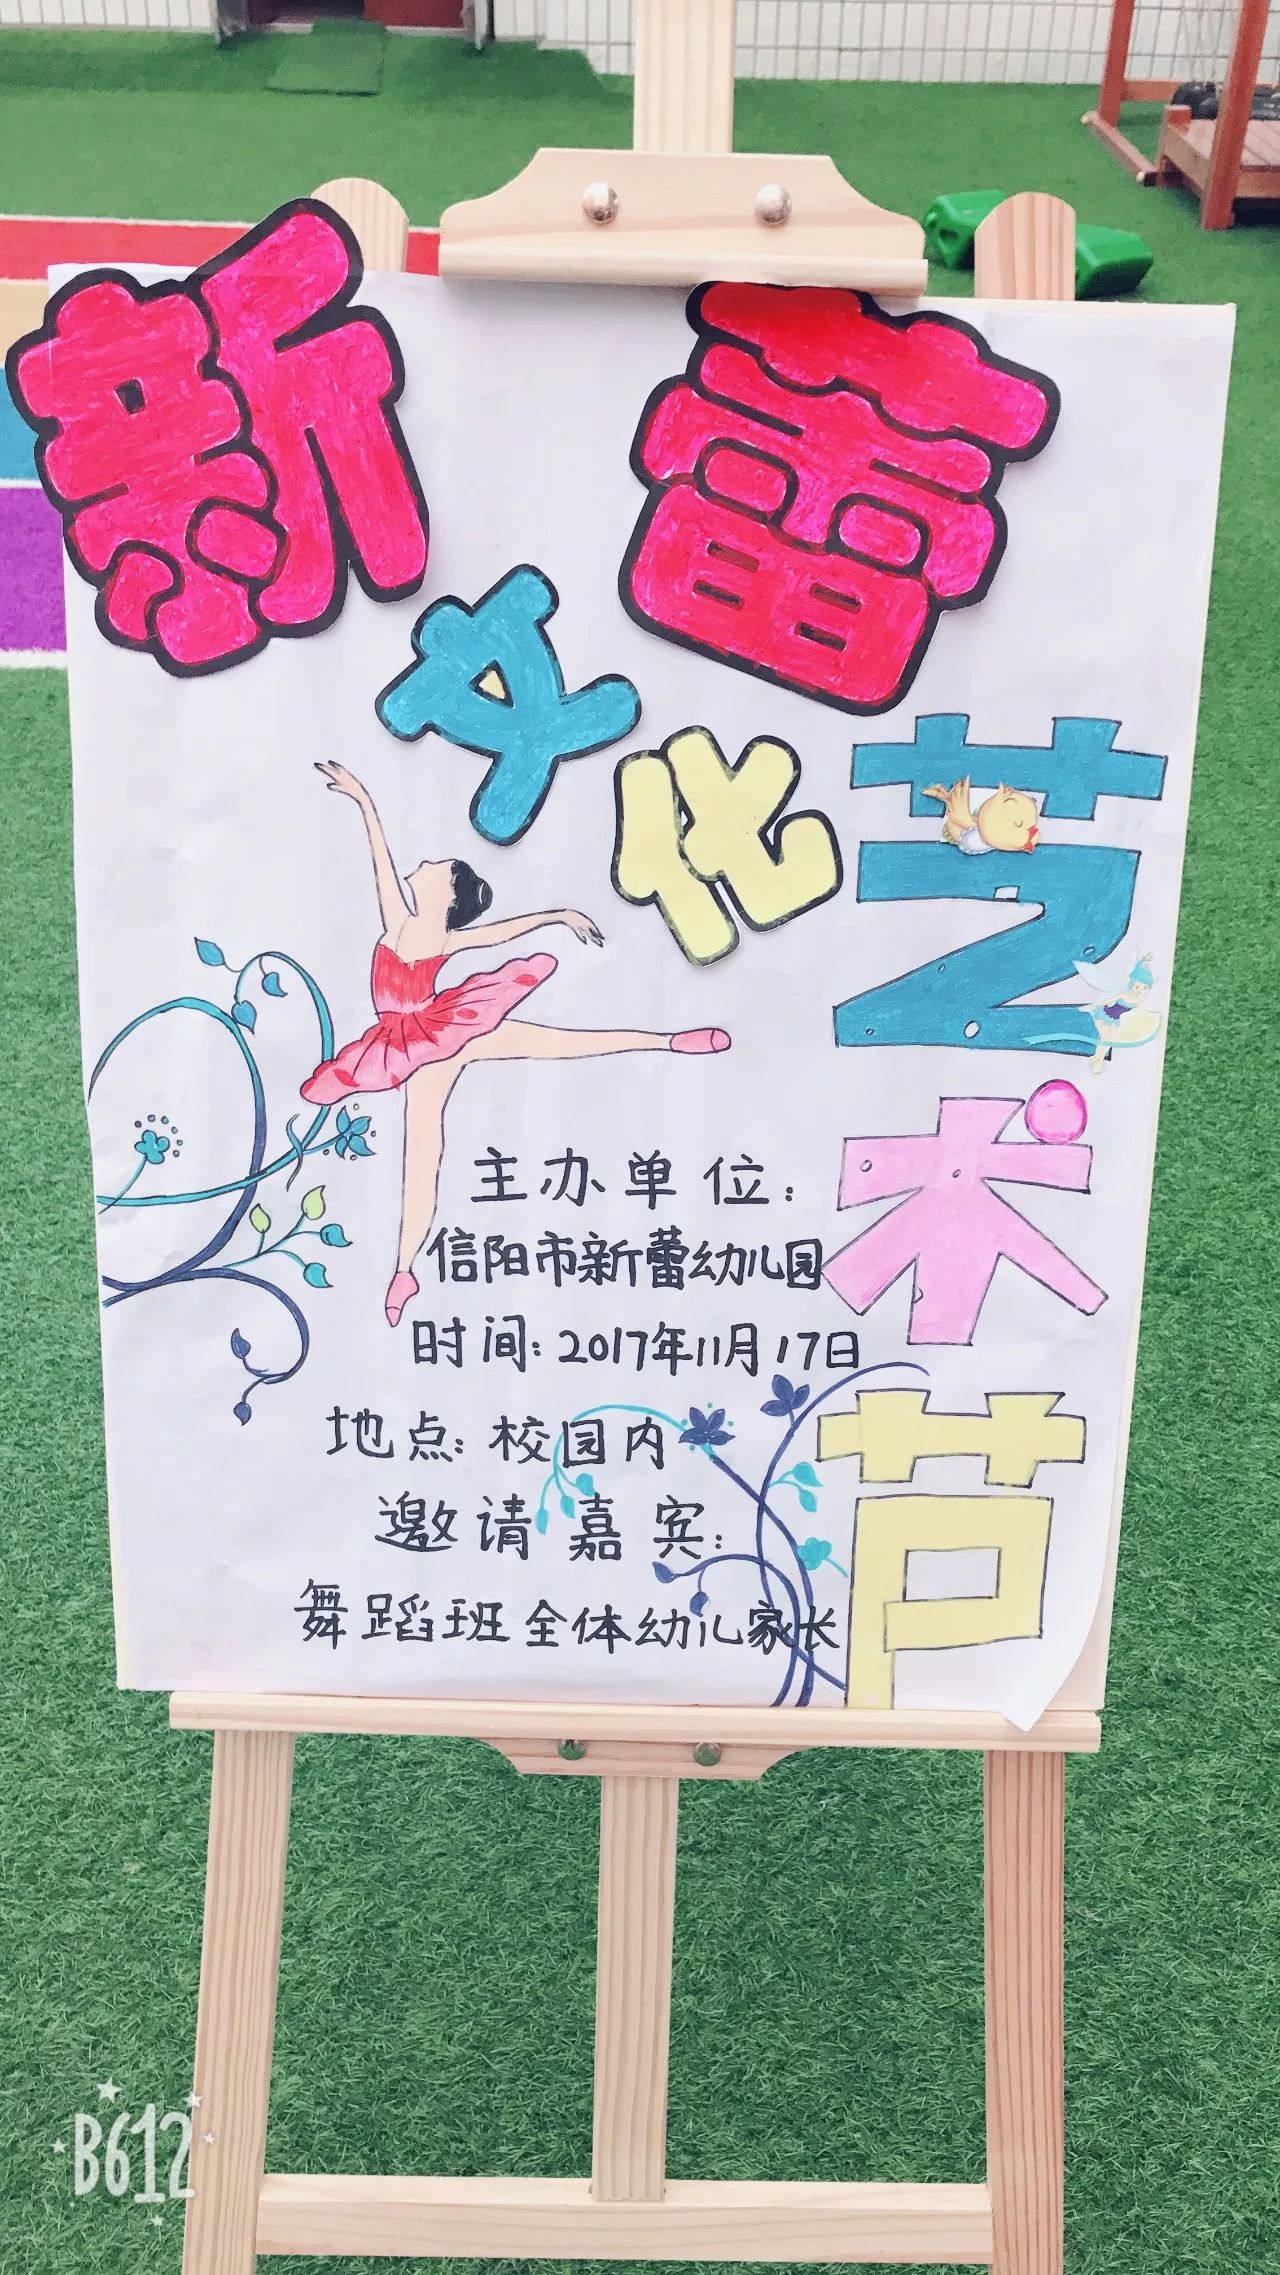 新蕾
文化
艺术节
主办单位:
信阳市新蕾幼儿园
时间:2017年11月17日
地点:校园内
邀请嘉宾:
舞蹈班全体幼儿家长
B612